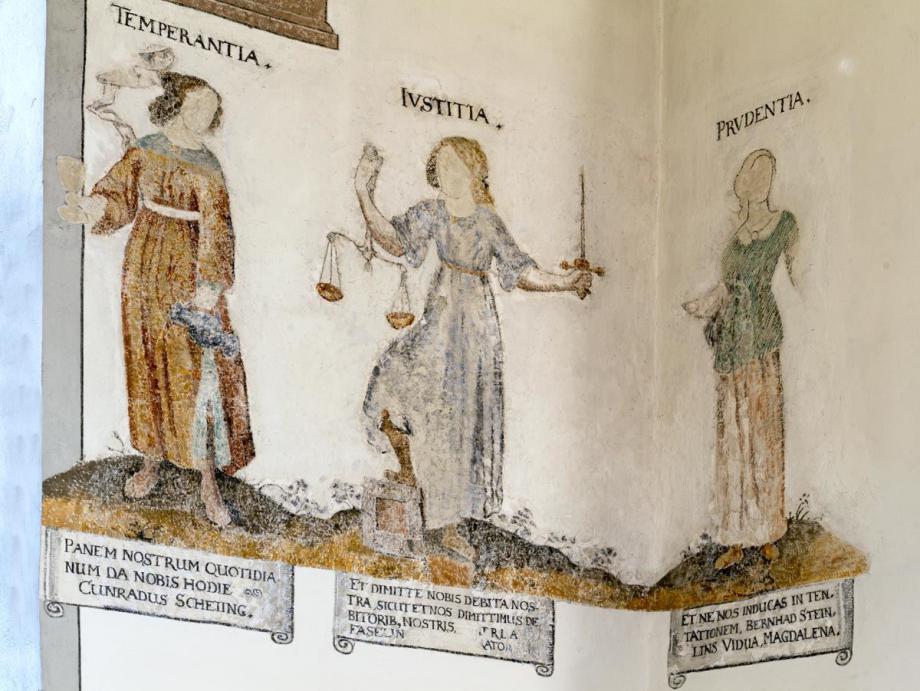 TEMPERANTIA.
IVSTITIA.
PRVDENTIA.
PANEM NOSTRUM QUOTIDIA
NUM DA NOBIS HODIE
CUNRADUS SCHETING.
ET DIMITTE NOBIS DEBITA NOS-
TRA, SICUT ET NOS DIMITTIMUS DE
BITORIB, NOSTRIS,
ET NE NOS INDUCAS IN TEN.
TATIONEM, BERNHAD STEIN.
LINS VIDUA, MAGDALENA.